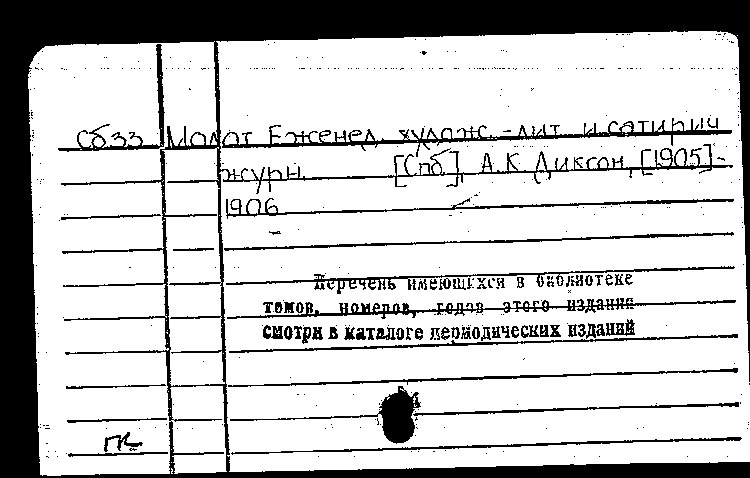 Сб33 Молот Еженед. худож.-лит. и сатирич
журн. [Спб], А.К. Диксон, [1905]-
1906
Перечень имеющихся в библиотеке
томов, номеров, годов этого издания
смотри в каталоге периодических изданий
ГК